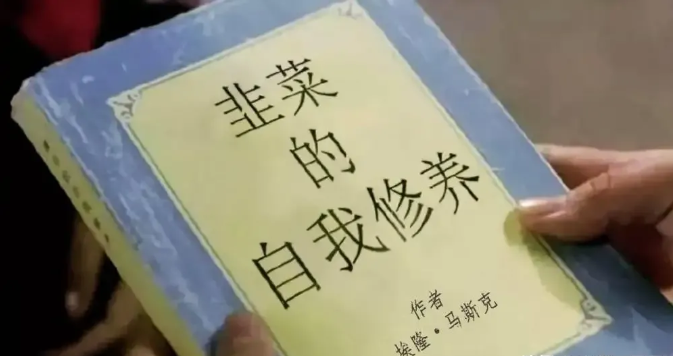 韭菜
的
自我修养
作者
埃隆·马斯克